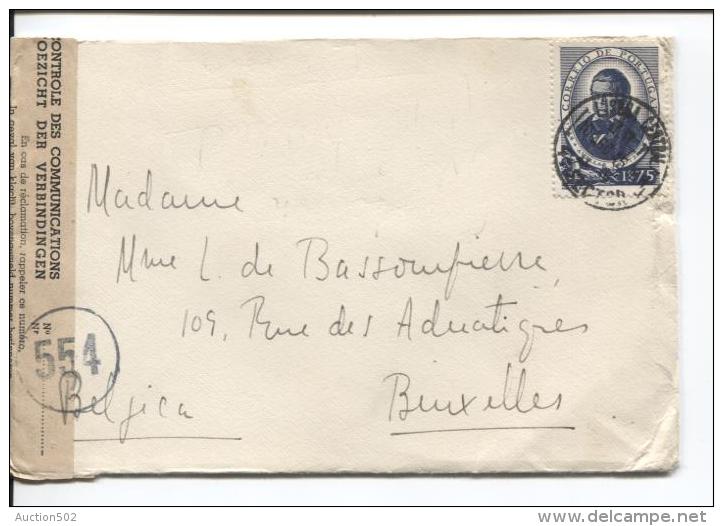 CONTROLE DES COMMUNICATIONS
TOEZICHT DER VERBINDINGEN
En cas de réclamation, rappeler ce numéro,
No
Nr
554
CORREIO DE PORTUGAL
1$75
LISBOA CENTRAL
Madame
Mme L. de Bassompierre
109, Rue des Aduatiques
Belgica
Bruxelles
Auction502
delcampe.net